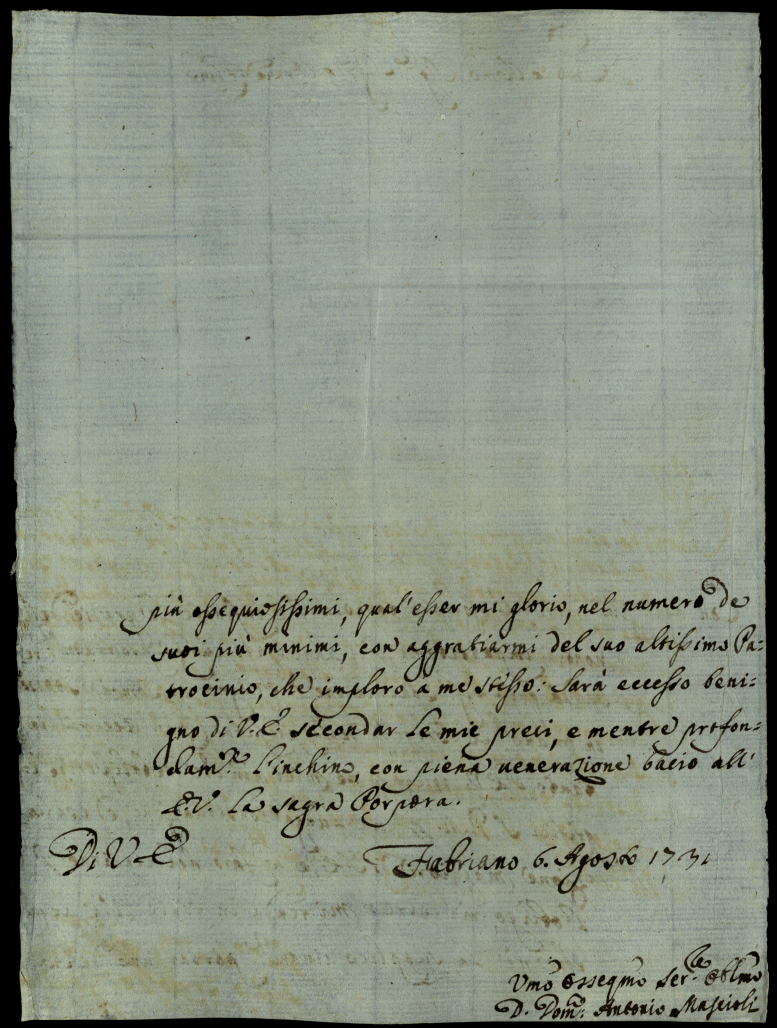 più ossequiosissimi, qual'esser mi glorio, nel numero de
suoi più minimi, con aggratiarmi del suo altissimo Pa=
trocinio, che imploro a me stesso: Sarà eccesso beni=
gno di V.E. secondar le mie preci, e mentre profon=
dam.te l'inchino, con piena venerazione bacio all'
E.V. la sagra Porpora.
Di V E Fabriano 6. Agosto 1731
Vmo Ossequmo ser.re Oblmo
D. Dom.co Antonio Mascioli